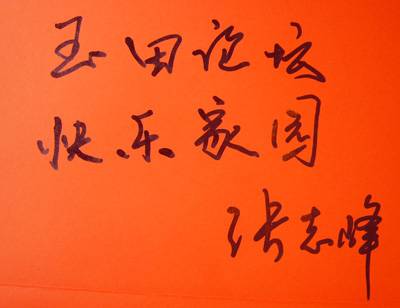 玉田论坛
快乐家园
张志峰